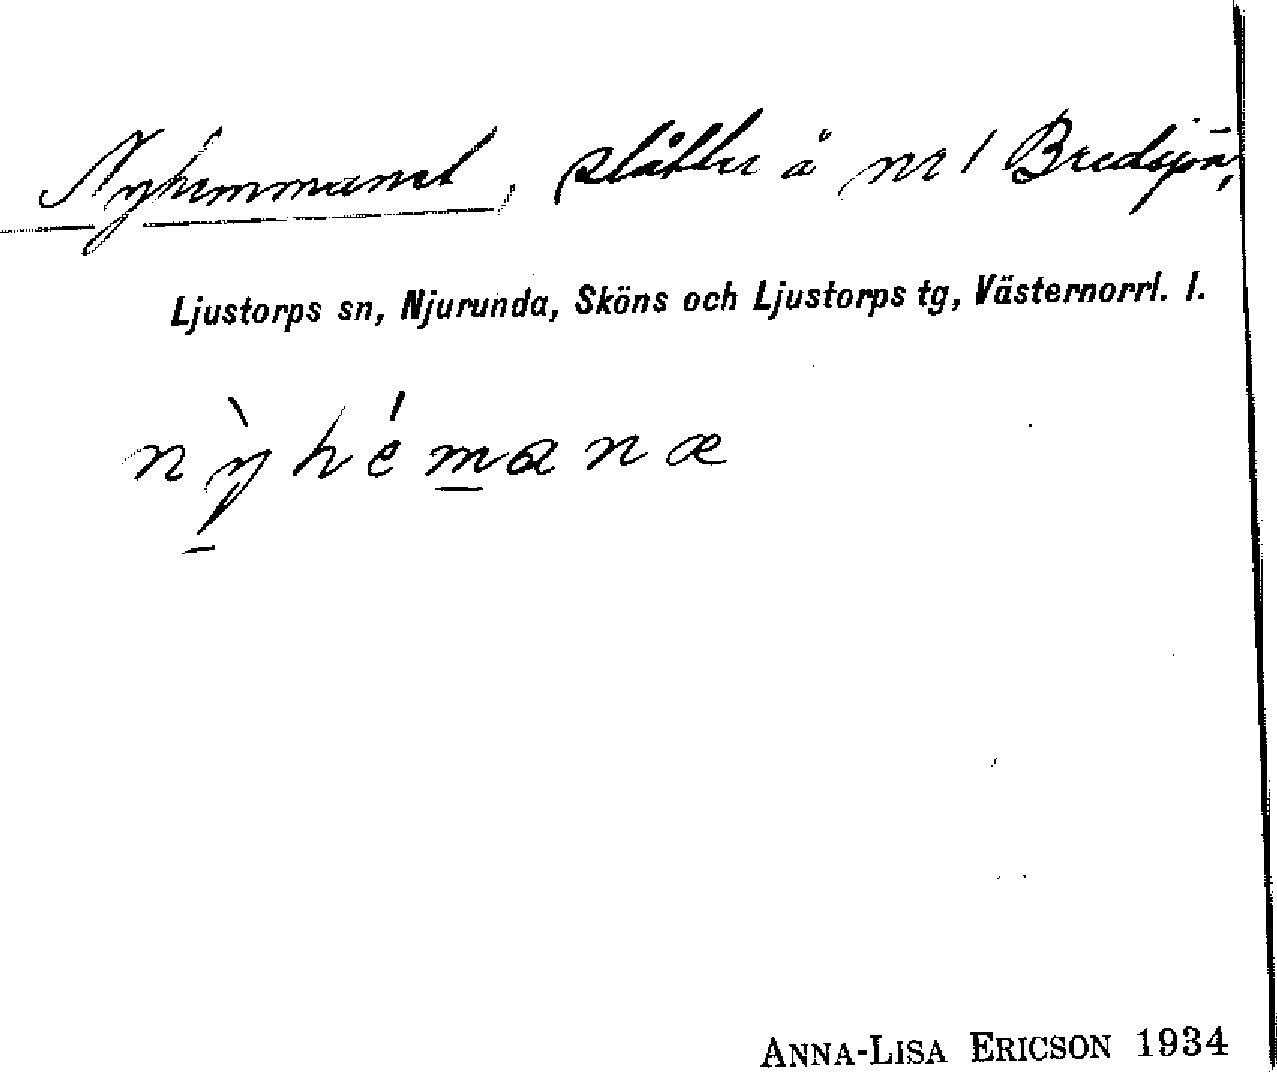 Nyhemmanet, slåtter å nr 1 Bredsjön,
Ljustorps sn, Njurunda, Sköns och Ljustorps tg, Västernorrl. l.
nỳhémanæ
ANNA-LISA ERICSON 1934